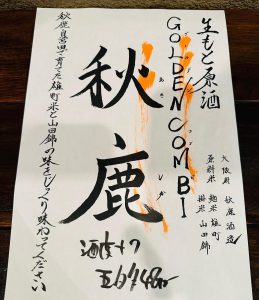 生もと原酒
GOLDEN COMBI
ゴールデンコンビ
大阪府 秋鹿酒造
原料米 麹米 雄町
掛米 山田錦
秋鹿
あきしか
秋鹿自営田で育てた雄町米と山田錦の味をじっくり味わってください